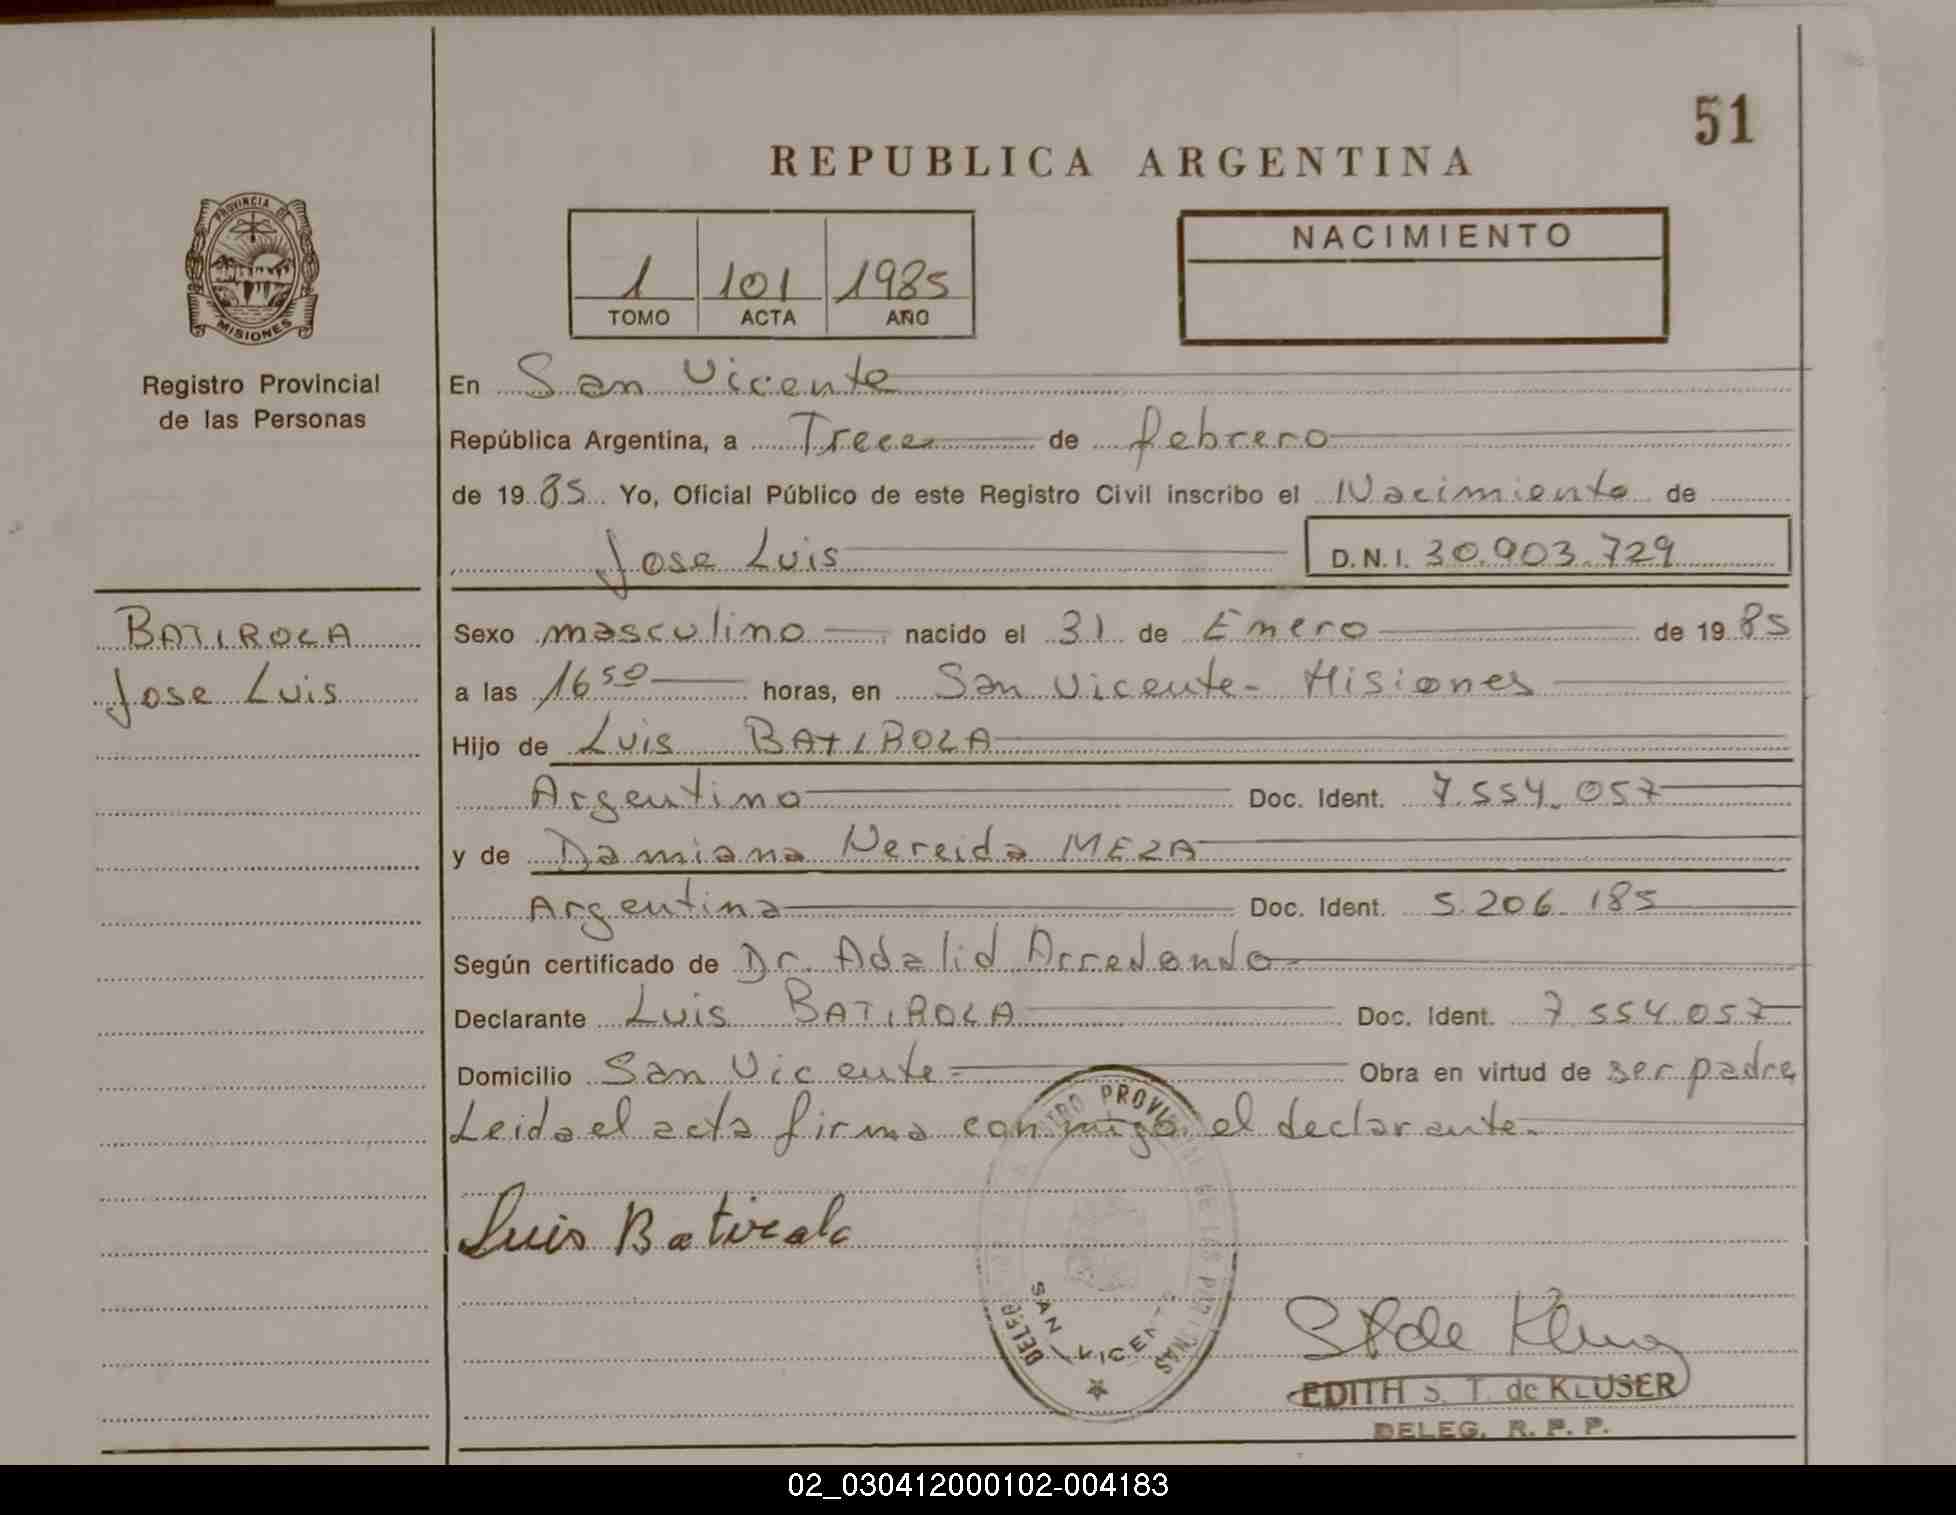 51
REPUBLICA ARGENTINA
PROVINCIA DE
MISIONES
Registro Provincial
de las Personas
1 101 1985
TOMO ACTA AÑO
NACIMIENTO
En San Vicente
República Argentina, a Trece de febrero
de 1985 Yo, Oficial Público de este Registro Civil inscribo el Nacimiento de
Jose Luis D.N.I. 30.903.729
BATIROLA
Jose Luis
Sexo masculino nacido el 31 de Enero de 1985
a las 16 50 horas, en San Vicente - Misiones
Hijo de Luis BATIROLA
Argentino Doc. Ident. 7.554.057
y de Damiana Nereida MEZA
Argentina Doc. Ident. 5.206.185
Según certificado de Dr. Adalid Arredondo
Declarante Luis BATIROLA Doc. Ident. 7.554.057
Domicilio San Vicente Obra en virtud de ser padre
Leida el acta firma conmigo el declarante.
Luis Batirola
SAN VICENTE
EDITH S. T. de KLUSER
DELEG. R. P. P.
02_030412000102-004183